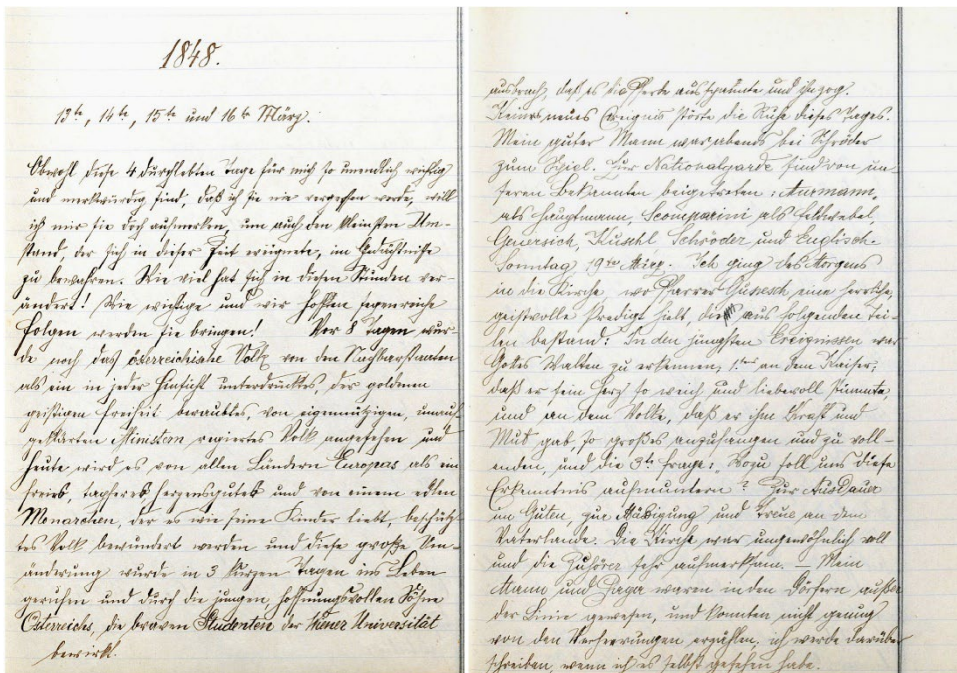 1848.
13te, 14te, 15te und 16te März.
Obwohl diese 4 durchlebten Tage für mich so unendlich wichtig
und merkwürdig sind, daß ich sie nie vergessen werde, will
ich mir sie doch aufmerken, um auch den kleinsten Um-
stand, der sich in dieser Zeit ereignete, im Gedächtniße
zu bewahren. Wie viel hat sich in diesen Stunden ver-
ändert! Wie wichtige und wir hoffen segenreiche
Folgen werden sie bringen! Vor 8 Tagen wur-
de noch das österreichische Volk von den Nachbarstaaten
als ein in jeder Hinsicht unterdrücktes, der goldnen
geistigen Freiheit beraubtes, von eigennützigen, unauf-
geklärten Ministern regiertes Volk angesehen und
heute wird es von allen Ländern Europas als ein
freies, tapferes herzensgutes und von einem edlen
Monarchen, der es wie seine Kinder liebt, beschütz-
tes Volk bewundert werden und diese große Um-
änderung wurde in 3 kurzen Tagen ins Leben
gerufen und durch die jungen hoffnungsvollen Söhne
Österreichs, de braven Studenten der Wiener Universität
bewirkt.
ausbrach, daß es die Pferde ausspannte und ihn zog.
Keines neues Ereignis störte die Ruhe dieses Tages.
Mein guter Mann war abends bei Schröder
zum Spiel. Zur Nationalgarde sind von un-
seren Bekannten beigetreten: Aurmann,
als Hauptmann, Scomparini als Feldwebel,
Genersich, Kuschl Schröder und Englisch.
Sonntag 19te März. Ich ging des Morgens
in die Kirche, wo Pfarrer eine herrliche,
geistvolle Predigt hielt, die aus folgenden Tei-
len bestand: In den jüngsten Ereignissen war
Gottes Walten zu erkennen, 1tens an dem Kaiser,
daß er sein Herz so weich und liebevoll stimmte,
und an dem Volke, daß er ihm Kraft und
Mut gab so großes anzufangen und zu voll-
enden, und die 3te Frage: "Wozu soll uns diese
Erkenntnis aufmuntern? Zur Ausdauer
im Guten, zur Mäßigung und Treue an dem
Vaterlande. Die Kirche war ungewöhnlich voll
und die Zuhörer sehr aufmerksam. — Mein
Mann und waren in den Dörfern außer
der Linie gewesen, und konnten nicht genung
von den Verheerungen erzählen. ich werde darüber
schreiben, wenn ich es selbst gesehen habe.